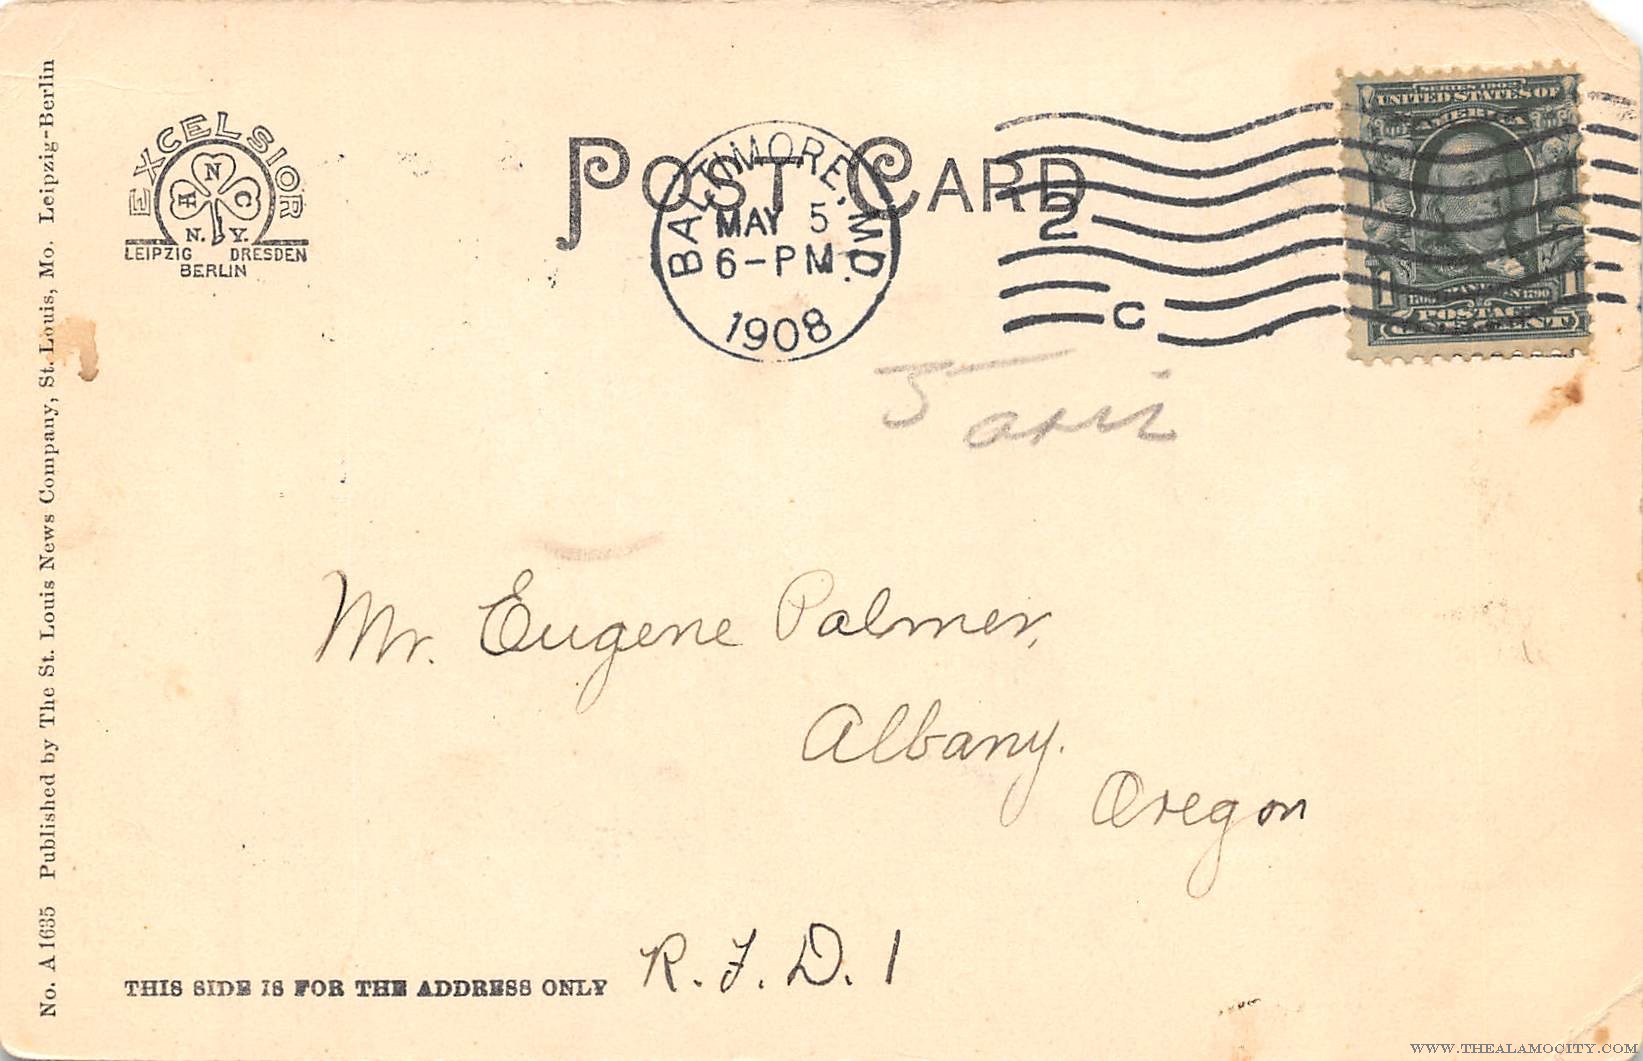 EXCELSIOR
A N C
N. Y.
LEIPZIG DRESDEN
BERLIN
POST CARD
BALTIMORE, MD.
MAY 5
6-PM
1908
2
C
SERIES 1902
UNITED STATES OF
AMERICA
FRANKLIN
1706 1790
1 1
POSTAGE
ONE CENT
Mr. Eugene Palmer,
Albany.
Oregon
R. F. D. 1
THIS SIDE IS FOR THE ADDRESS ONLY
No. A 1635 Published by The St. Louis News Company, St. Louis, Mo. Leipzig-Berlin
WWW.THEALAMOCITY.COM